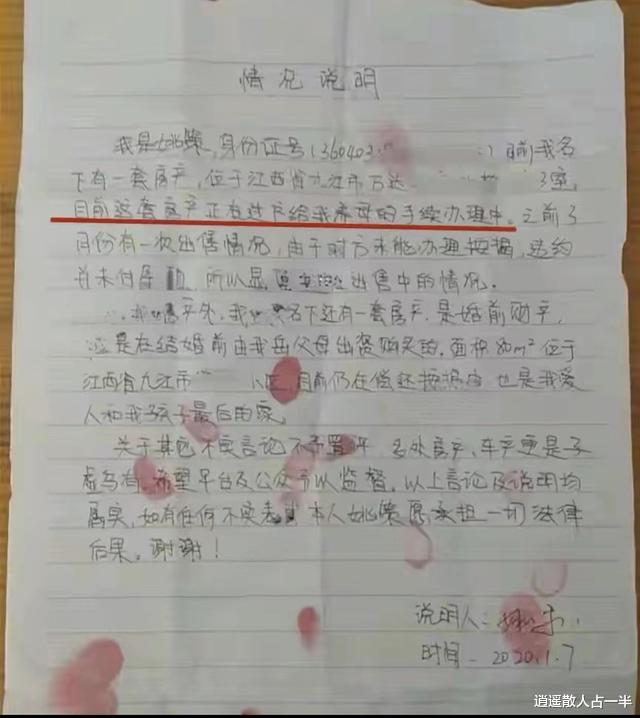 情况说明
我是姚策,身份证号(360403 目前我名
下有一套房产,位于江西省九江市万达 3室,
目前这套房产正在过户给我养母的手续办理中。之前3
月份有一次出售情况,由于对方未能办理按揭,违约
并未付 所以显 出售中的情况。
名下还有一套房产,是婚前财产,
这是在结婚前由我岳父母出资购买的,面积80m²位于
江西省九江市 区,目前仍在偿还按揭 也是我爱
人和我孩子最后的家。
关于其它不实言论不予置评,多处房产、车产更是子
虚乌有,希望平台及公众予以监督,以上言论及说明均
属实,如有任何不实 本人姚策愿承担一切法律
后果。谢谢!
说明人:
时间 2020.1.7
逍遥散人占一半